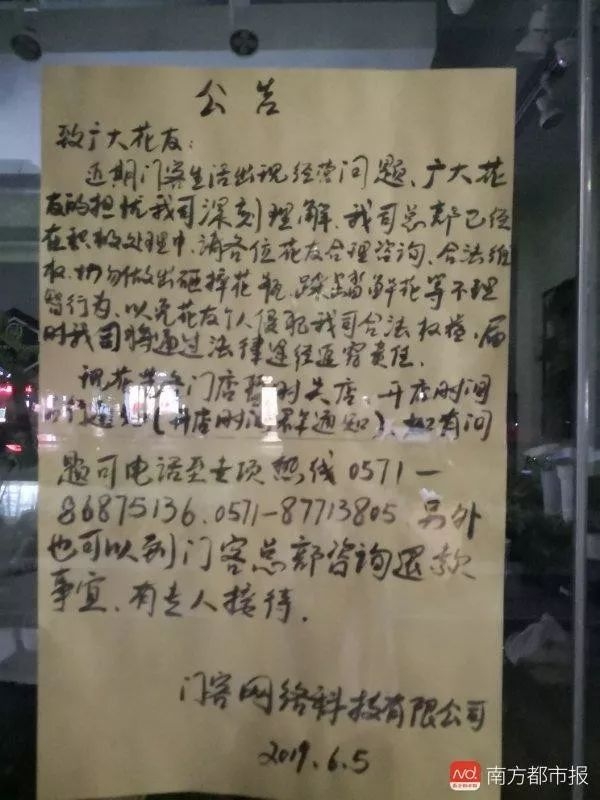 公告
致广大花友:
近期门客生活出现经营问题、广大花
友的担忧我司深刻理解、我司总部已经
在积极处理中、请各位花友合理咨询、合法维
权、切勿做出砸摔花瓶、踩踏鲜花等不理
智行为、以免花友个人侵犯我司合法权益、届
时我司将通过法律途径追究责任.
现花 各门店暂时关店、开店时间
(开店时间另行通知)、如有问
题可电话至专项热线0571-
86875136、0571-87713805、另外
也可以到门客总部咨询退款
事宜、有专人接待.
门客网络科技有限公司
2019.6.5
南方都市报